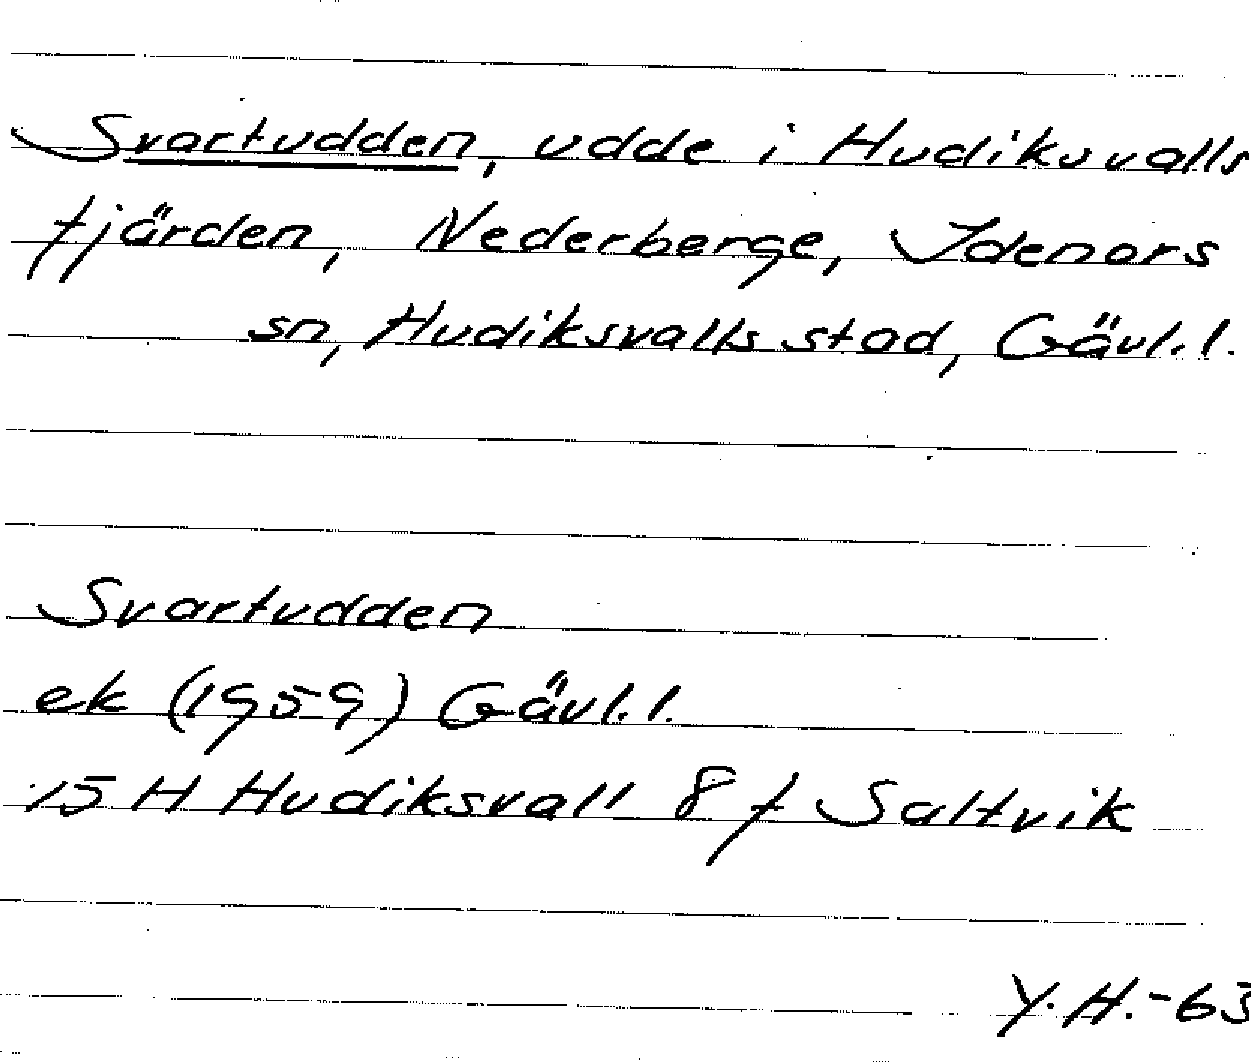 Svartudden, udde i Hudiksvalls
fjärden, Nederberge, Idenors
sn, Hudiksvalls stad, Gävl.l.
Svartudden
ek (1959) Gävl.l.
15 H Hudiksvall 8 f Saltvik
Y.H.-63